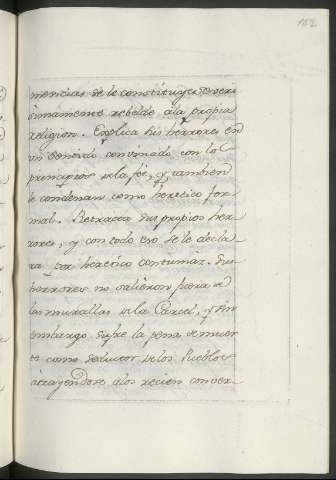 152
mencias se le constituye severi
simamente rebelde á la propia
religion. Explica sus herrores en
un sentido convinado con los
principios de la fée, y tambien
le condenan como heretico for
mal. Retracta sus propios her
rores, y con todo eso se le decla
ra por heretico contumaz. Sus
herrores no salieron fuera de
las murallas de la Carcel, y sin
embargo sufre la pena de muer
te como seductor de los Pueblos
atrayendose a los recien conver-